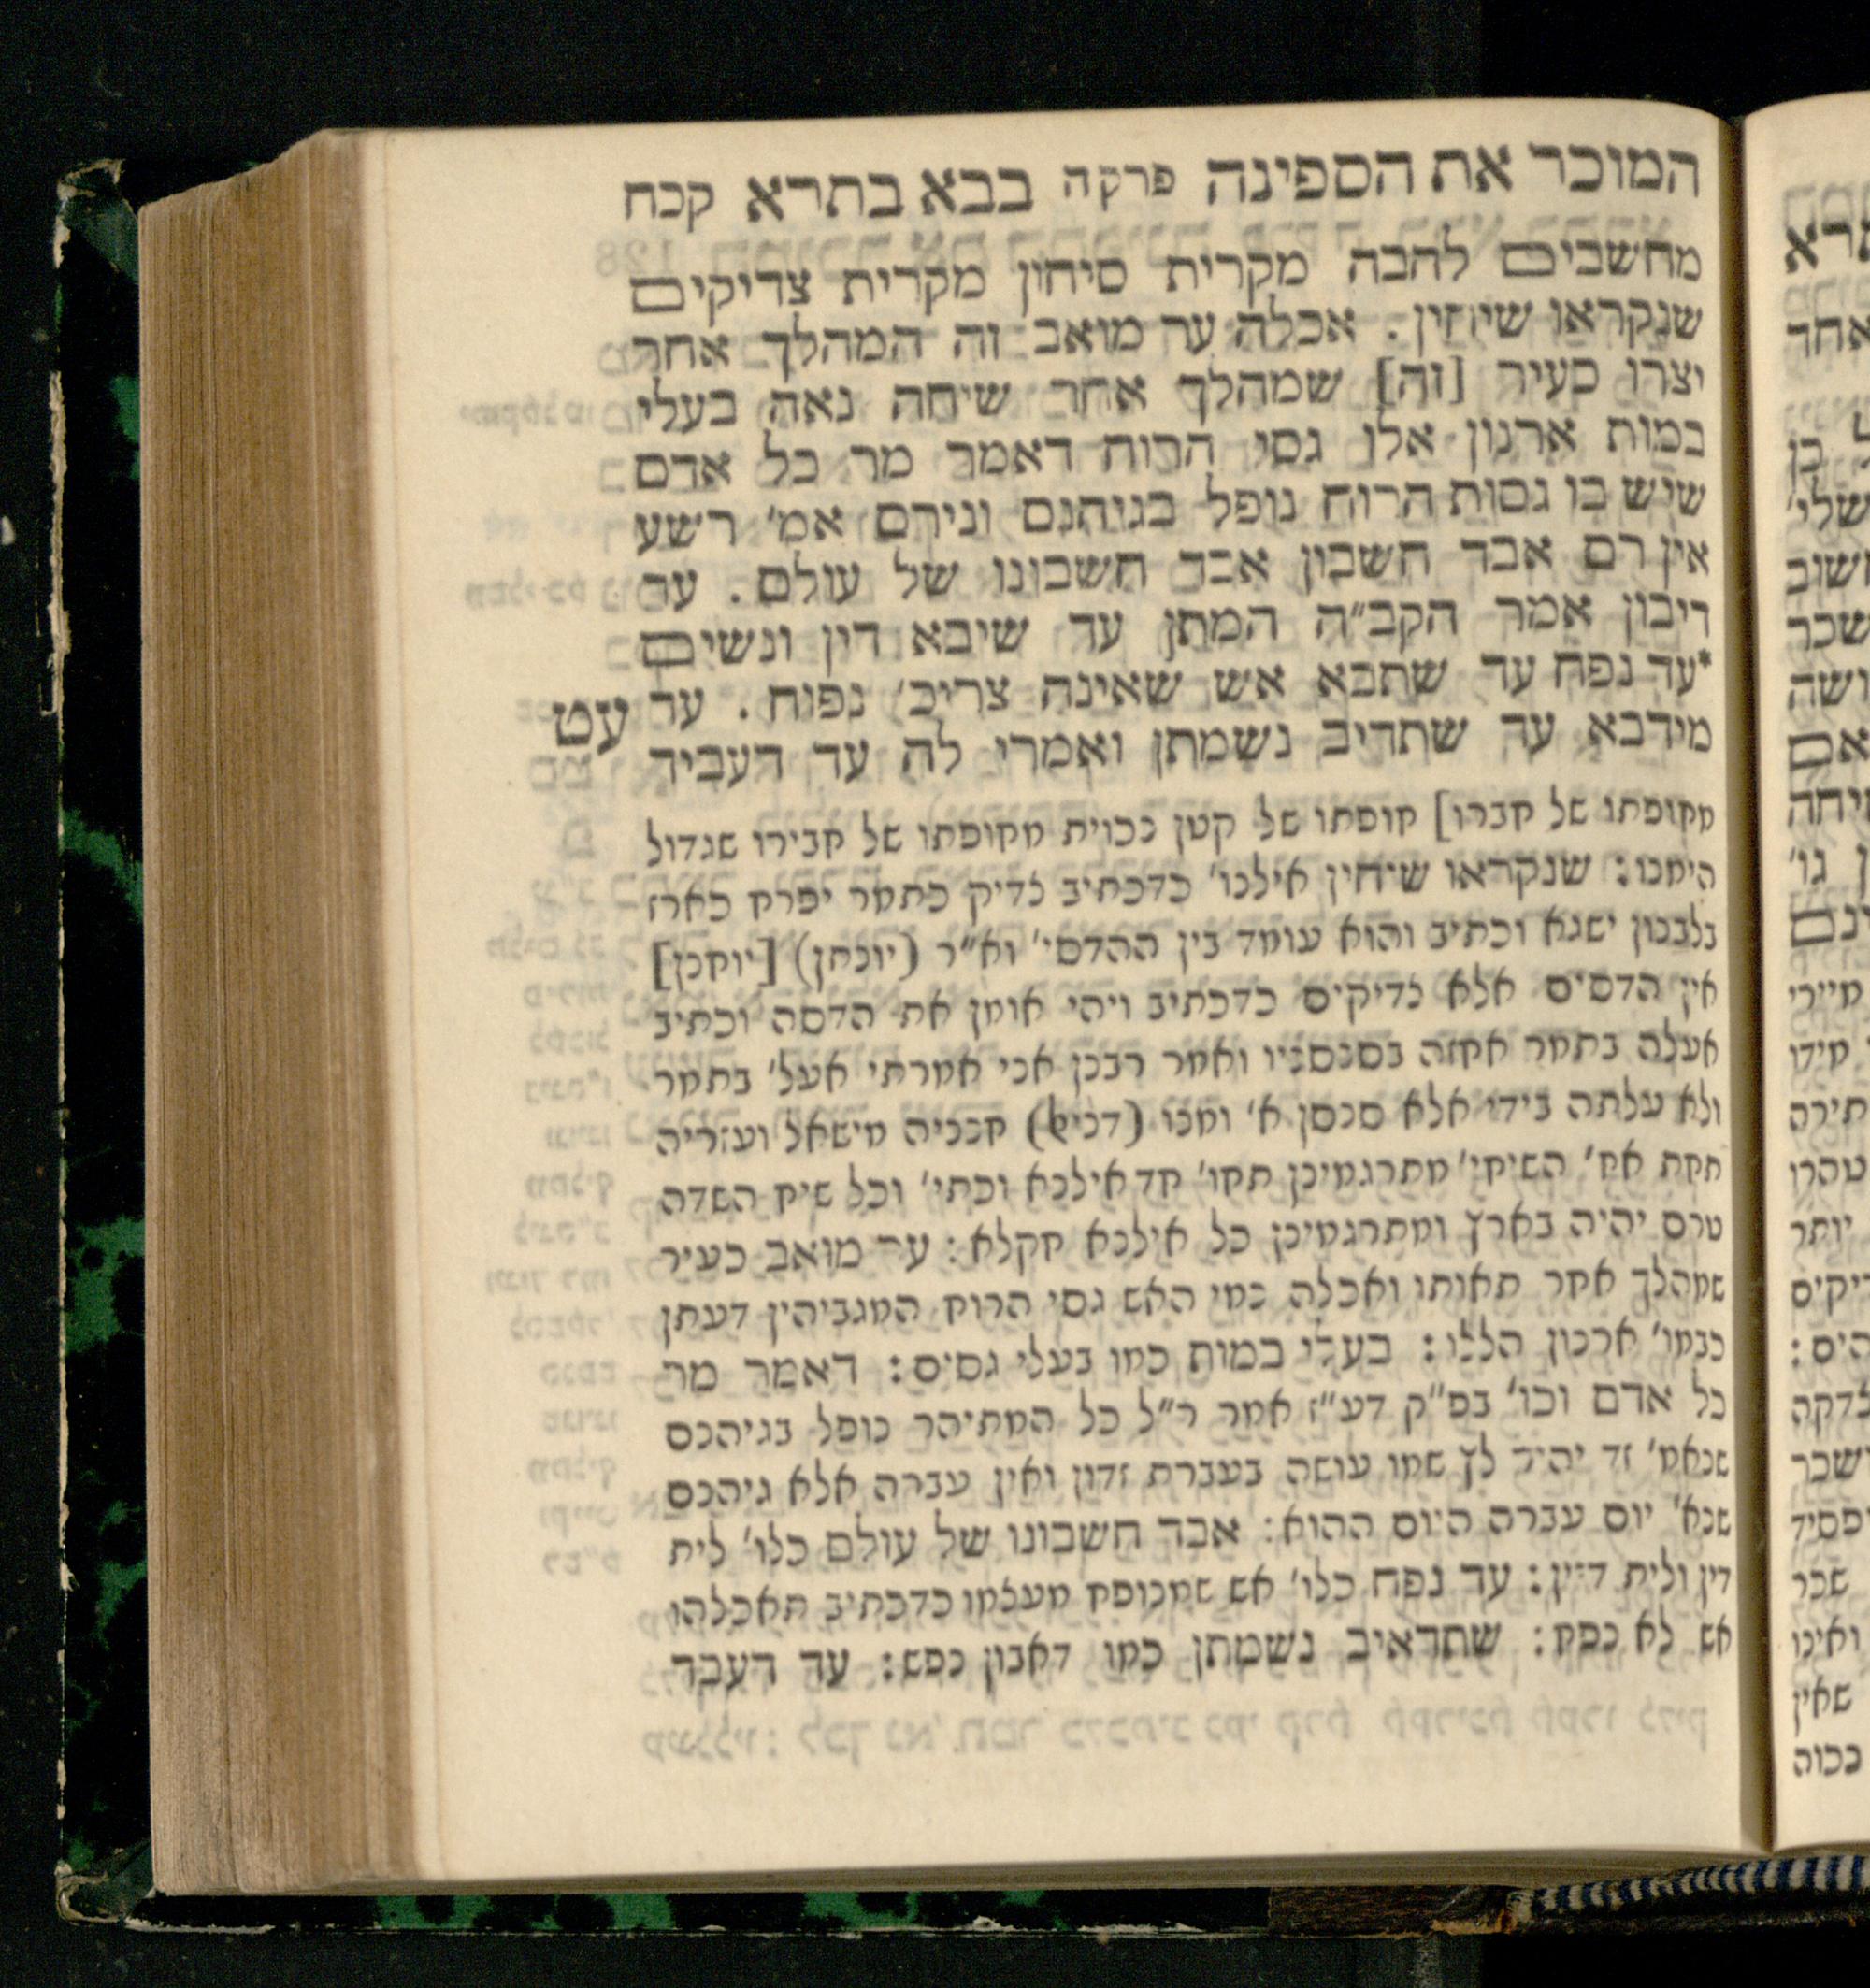 המוכר את הספינה פרק ה בבא בתרא קכח
מחשבים להבה מקרית סיחון מקרית צדיקים
שנקראו שיחין . אכלה ער מואב זה המהלך אחר
יצרו כעיר [זה] שמהלך אחר שיחה נאה בעלי
במות ארנון אלו גסי הרוח דאמר מר כל אדם
שיש בו גסות הרוח נופל בגיהנם ונירם אמ׳ רשע
אין רם אבד חשבון אבד חשבונו של עולם . עד
דיבון אמר הקב״ה המתן עד שיבא דין ונשים
*עד נפח עד שתבא אש שאינה צריכ׳ נפוח . עד עט
מידבא עד שתדיב נשמתן ואמרי לה עד דעביד
מקופתו של חברו] קופתו של קטן נכוית מקופתו של חבירו שגדול
הימנו: שנקראו שיחין אילנו׳ כדכתיב צדיק כתמר יפרח כארז
בלבנון ישגא וכתיב והוא עומד בין ההדסי׳ וא״ר (יונתן) [יוחנן]
אין הדסים אלא צדיקים כדכתיב ויהי אומן את הדסה וכתיב
אעלה בתמר אחזה בסנסניו ואמר רבנן אני אמרתי אעל׳ בתמר
ולא עלתה בידי אלא סנסן א׳ ומנו חנניה מישאל ועזריה
תחת אח׳ השיחי׳ מתרגמינן תחו׳ חד אילנא וכתי׳ וכל שיח השדה
טרם יהיה בארץ ומתרגמינן כל אילנא חקלא: ער מואב כעיר
שמהלך אחר תאותו ואכלה כמי האש גסי הרוח המגביהין דעתן
כבמו׳ ארנון הללו: בעלי במות כמו בעלי גסים: דאמר מר
כל אדם וכו׳ בפ״ק דע״ז אמר ר״ל כל המתיהר נופל בגיהנם
שנאמ׳ זד יהיר לץ שמו עושה בעברת זדון ואין עברה אלא גיהנם
שנא׳ יום עברה היום ההוא: אבד חשבונו של עולם כלו׳ לית
דין ולית דיין: עד נפח כלו׳ אש שמנופח מעצמו כדכתיב תאכלהו
אש לא נפח: שתדאיב נשמתן כמו דאבון נפש: עד דעבד